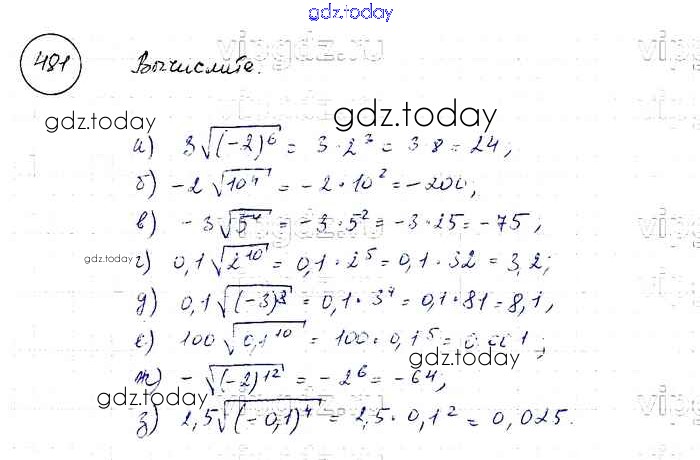 gdz.today
481 Вычислите.
vipgdz.ru
gdz.today
gdz.today
а) 3√(-2)⁶ = 3·2³ = 3·8 = 24;
б) -2√10⁴ = -2·10² = -200,
в) -3√5⁴ = -3·5² = -3·25 = -75;
г) 0,1√2¹⁰ = 0,1·2⁵ = 0,1·32 = 3,2;
gdz.today
д) 0,1√(-3)⁸ = 0,1·3⁴ = 0,1·81 = 8,1,
е) 100√0,1¹⁰ = 100·0,1⁵ = 0,001;
gdz.today
ж) -√(-2)¹² = -2⁶ = -64;
gdz.today
з) 2,5√(-0,1)⁴ = 2,5·0,1² = 0,025.